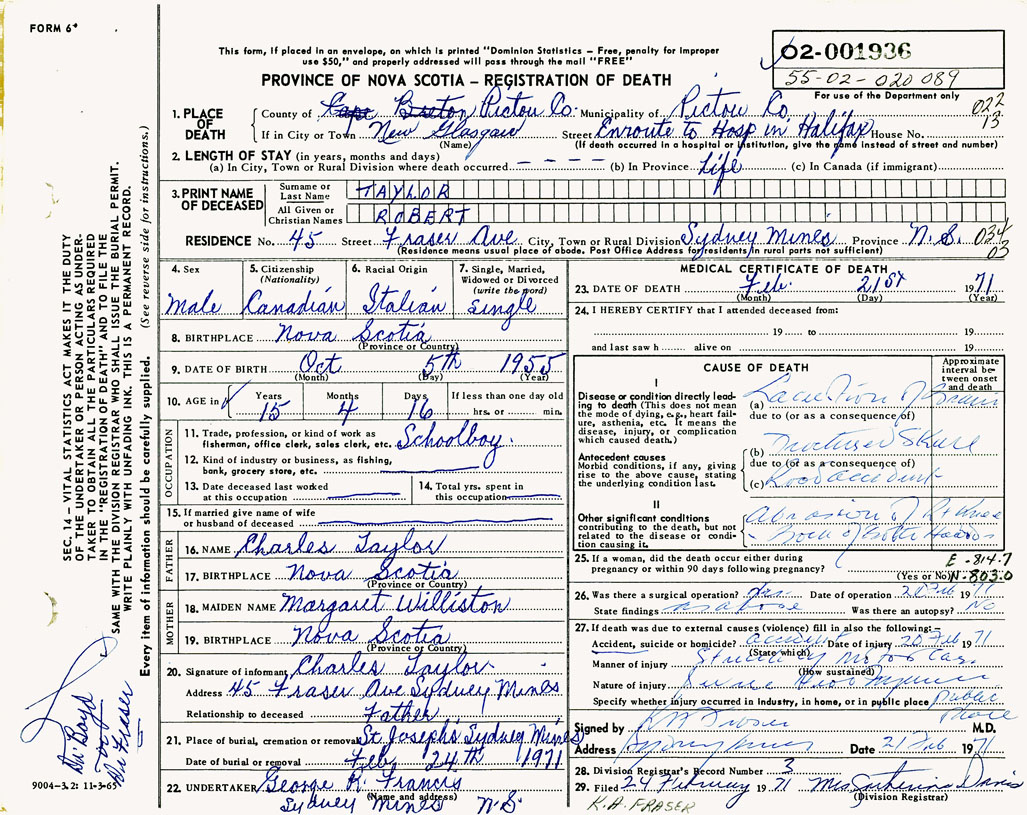 FORM 6
This form, if placed in an envelope, on which is printed "Dominion Statistics – Free, penalty for improper
use $50," and properly addressed will pass through the mail "FREE"
PROVINCE OF NOVA SCOTIA – REGISTRATION OF DEATH
O2-001936
55-02-020089
For use of the Department only
1. PLACE OF DEATH
County of Cape Breton Pictou Co. Municipality of Pictou Co. 022
If in City or Town New Glasgow Street Enroute to Hosp in Halifax House No. 13
(Name) (If death occurred in a hospital or institution, give the name instead of street and number)
2. LENGTH OF STAY (in years, months and days)
(a) In City, Town or Rural Division where death occurred – – – – (b) In Province Life (c) In Canada (if immigrant)
3. PRINT NAME OF DECEASED
Surname or Last Name TAYLOR
All Given or Christian Names ROBERT
RESIDENCE No. 45 Street Fraser Ave City, Town or Rural Division Sydney Mines Province N.S. 034
(Residence means usual place of abode. Post Office Address for residents in rural parts not sufficient) 03
4. Sex Male
5. Citizenship (Nationality) Canadian
6. Racial Origin Italian
7. Single, Married, Widowed or Divorced (write the word) Single
8. BIRTHPLACE Nova Scotia
(Province or Country)
9. DATE OF BIRTH Oct 5th 1955
(Month) (Day) (Year)
10. AGE in Years 15 Months 4 Days 16 If less than one day old hrs. or min.
OCCUPATION
11. Trade, profession, or kind of work as fisherman, office clerk, sales clerk, etc. Schoolboy.
12. Kind of industry or business, as fishing, bank, grocery store, etc.
13. Date deceased last worked at this occupation
14. Total yrs. spent in this occupation
15. If married give name of wife or husband of deceased
FATHER
16. NAME Charles Taylor
17. BIRTHPLACE Nova Scotia
(Province or Country)
MOTHER
18. MAIDEN NAME Margaret Williston
19. BIRTHPLACE Nova Scotia
(Province or Country)
20. Signature of informant Charles Taylor
Address 45 Fraser Ave Sydney Mines
Relationship to deceased Father
21. Place of burial, cremation or removal St Joseph's Sydney Mines
Date of burial or removal Feb 24th 1971
22. UNDERTAKER George R. Francis
(Name and address)
Sydney Mines N.S.
MEDICAL CERTIFICATE OF DEATH
23. DATE OF DEATH Feb. 21st 1971
(Month) (Day) (Year)
24. I HEREBY CERTIFY that I attended deceased from:
19 to 19
and last saw h alive on 19
CAUSE OF DEATH
Approximate interval between onset and death
I
Disease or condition directly leading to death (This does not mean the mode of dying, e.g., heart failure, asthenia, etc. It means the disease, injury, or complication which caused death.)
(a) of Brain
due to (or as a consequence of)
Antecedent causes
Morbid conditions, if any, giving rise to the above cause, stating the underlying condition last.
(b) Fractured Skull
due to (or as a consequence of)
(c) Road accident
II
Other significant conditions contributing to the death, but not related to the disease or condition causing it.
Abrasion of Rt Knee
of both Hands
25. If a woman, did the death occur either during pregnancy or within 90 days following pregnancy? E-814.7
(Yes or No) N-803.0
26. Was there a surgical operation? Yes Date of operation 20 Feb 1971
State findings as above Was there an autopsy? No
27. If death was due to external causes (violence) fill in also the following:–
Accident, suicide or homicide? accident Date of injury 20 Feb 1971
(State which)
Manner of injury Struck by Motor Car
(How sustained)
Nature of injury Head Injuries
Specify whether injury occurred in industry, in home, or in public place Public Place
Signed by M.D.
Address Sydney Mines Date 21 Feb 1971
28. Division Registrar's Record Number 3
29. Filed 24 February 1971 Mrs Catherine Davis
(Division Registrar)
K.A. FRASER
SEC. 14 – VITAL STATISTICS ACT MAKES IT THE DUTY
OF THE UNDERTAKER OR PERSON ACTING AS UNDER-
TAKER TO OBTAIN ALL THE PARTICULARS REQUIRED
IN THE "REGISTRATION OF DEATH" AND TO FILE THE
SAME WITH THE DIVISION REGISTRAR WHO SHALL ISSUE THE BURIAL PERMIT.
WRITE PLAINLY WITH UNFADING INK. THIS IS A PERMANENT RECORD.
Every item of information should be carefully supplied. (See reverse side for instructions.)
Dr Boyd
Dr Fraser
9004-3.2: 11-3-65